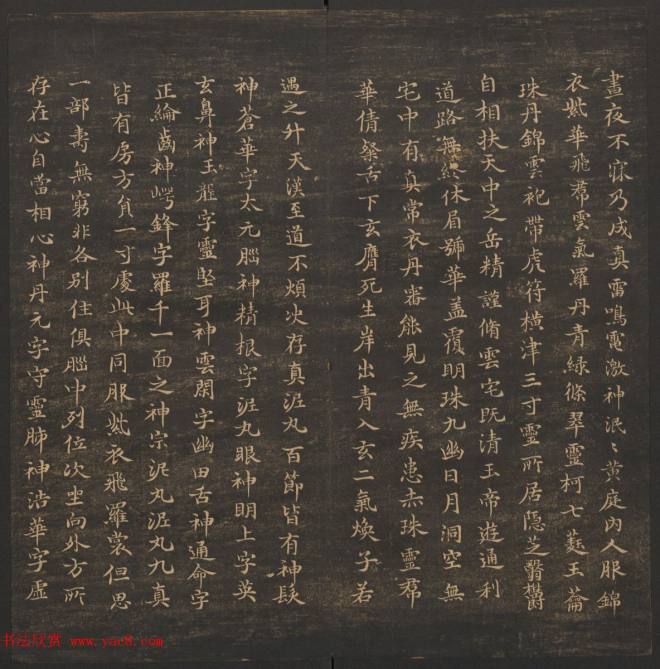 晝夜不寐乃成真雷鳴電激神泯〻黄庭内人服錦
衣紫華飛帬雲氣羅丹青緑條翠靈柯七蕤玉籥
珠丹錦雲袍帶虎符横津三寸靈所居隐芝翳欝
自相扶天中之岳精謹脩雲宅既清玉帝遊通利
道路無終休眉號華盖覆明珠九幽日月洞空無
宅中有真常衣丹審能見之無疾患赤珠靈帬
華倩粲舌下玄膺死生岸出青入玄二氣焕子若
遇之升天漢至道不煩决存真泥丸百節皆有神髮
神蒼華字太元腦神精根字泥丸眼神明上字英
玄鼻神玉壠字靈堅耳神雲閑字幽田舌神通命字
正綸齒神崿鋒字羅千一面之神宗泥丸泥丸九真
皆有房方負一寸處此中同服紫衣飛羅裳但思
一部壽無窮非各别住俱腦中列位次坐向外方所
存在心自當相心神丹元字守靈肺神浩華字虚
书法欣赏 www.yac8.com